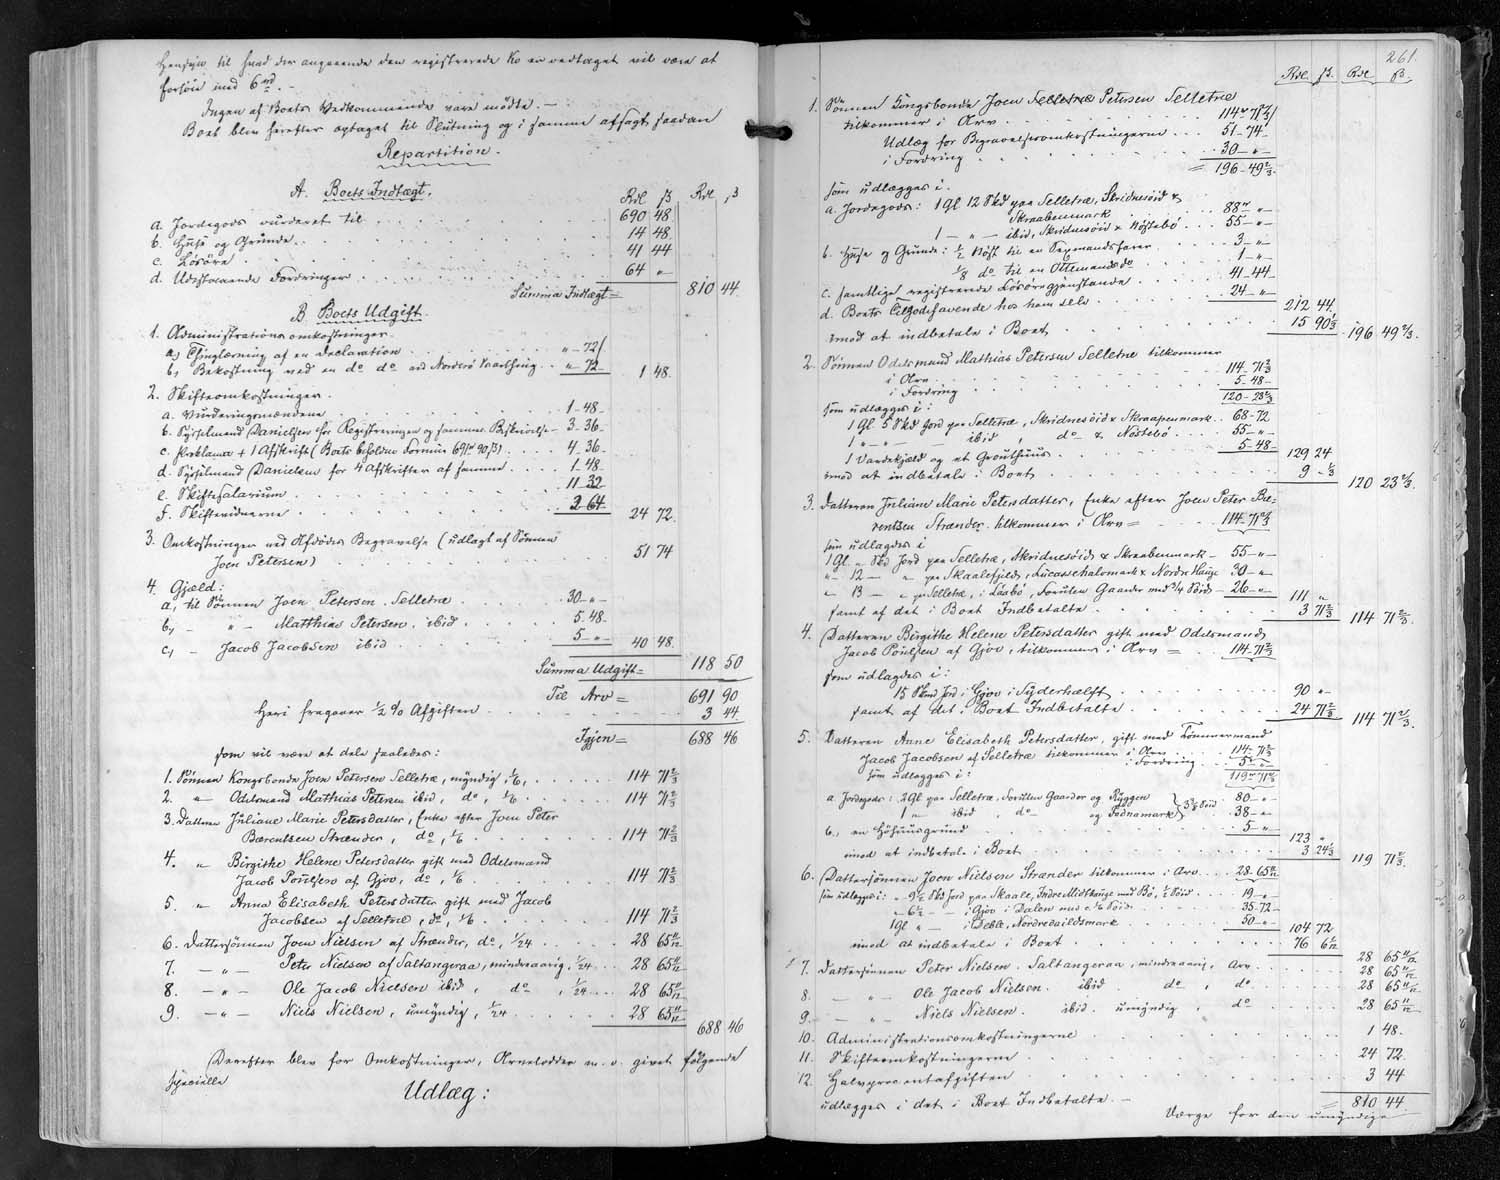 Hensyn til hvad der angaaende den registrerede Ko er vedtaget vil være at
forsøie med 6 rd. -
Ingen af Boets Vedkommende vare mødte. -
Boet blev herefter optaget til Slutning og i samme afsagt saadan
Repartition.
A. Boets Indtægt.
Rdl ß Rdl ß
a. Jordegods vurderet til 690 48.
b. Huse og Grunde 14 48.
c. Løsøre 41 44
d. Udestaaende Fordringer 64 "
Summa Indtægt = 810 44.
B. Boets Udgift.
1. Administrationsomkostninger.
a, Thinglæsning af en Declaration " - 72
b, Bekostning ved en do do ved Norderø Vaarthing " 72 1 48.
2. Skifteomkostninger.
a. Vurderingsmændene 1 - 48 -
b. Sysselmand Danielsen for Registreringen og sammes Beskrivelse - 3 - 36 -
c. Proklama + 1 Afskrift (Boets beholdne Formue 691 rd 90 ß) 4 - 36
d. Sysselmand Danielsen for 4 Afskrifter af samme 1 - 48 -
e. Skiftesalarium 11 32
f. Skiftevidnerne 2 64 24 72.
3. Omkostninger ved Afdødes Begravelse (udlagt af Sønnen
Joen Petersen) 51 74
4. Gjæld:
a, til Sønnen Joen Petersen. Selletræ 30 - " -
b, - " - Matthias Petersen. ibid 5. 48.
c, - Jacob Jacobsen ibid 5 - " - 40 48.
Summa Udgift = 118 50
Til Arv = 691 90
Heri fragaaer ½ % Afgiften 3 44.
Igjen = 688 46
som vil være at dele saaledes:
1. Sønnen Kongsbonde Joen Petersen Selletræ, myndig, 1/6, 114 71 2/3
2. " Odelsmand Mathias Petersen ibid, do, 1/6 114 71 2/3
3. Datteren Juliane Marie Petersdatter, Enke efter Joen Peter
Bærentsen Strænder, do, 1/6 114 71 2/3
4. " Birgithe Helene Petersdatter gift med Odelsmand
Jacob Poulsen af Gjov, do, 1/6 114 71 2/3
5. " Anna Elisabeth Petersdatter gift med Jacob
Jacobsen af Selletræ, do, 1/6 114 71 2/3
6. Dattersønnen Joen Nielsen af Strænder, do, 1/24 28 65 11/12
7. - " - Peter Nielsen af Saltangeraa, mindreaarig, 1/24 28 65 11/12
8. - " - Ole Jacob Nielsen ibid, do, 1/24 28 65 11/12
9. - " - Niels Nielsen, umyndig, 1/24 28 65 11/12
688 46
Derefter blev for Omkostninger, Arvelodder m. v. givet følgende
specielle
Udlæg:
261.
Rdl. ß. Rdl ß.
1. Sønnen Kongsbonde Joen Petersen Selletræ
tilkommer i Arv 114 - 71 2/3
Udlæg for Begravelsesomkostningerne 51 - 74 -
i Fordring 30 - " -
= 196 - 49 2/3.
som udlægges i.
a. Jordegods: 1 Gl 12 Skd paa Selletræ, Skridnesøid &
Skraabenmark 88 - " -
1 - " - ibid, Skridnesøid & Nøstebø 55 - " -
b. Huse og Grunde: ½ Nøst til en Sexmandsfarer 3 - " -
1/8 do til en Ottemands do 1 - " -
c. samtlige registrerede Løsøregjenstande 41 44 -
d. Boets Tilgodehavende hos ham selv 24 - " -
212 44.
imod at indbetale i Boet 15 90 1/3 196 49 2/3.
2. Sønnen Odelsmand Mathias Petersen Selletræ tilkommer
i Arv 114 - 71 2/3
i Fordring 5 - 48 -
120 - 23 2/3
som udlægges i:
1 Gl. 5 Skd Jord paa Selletræ, Skridnesøid & Skraapenmark 68 - 72
1 " - " - ibid, do & Nøstebø 55 - " -
1 Vandekjæld og et Grouthuus 5 - 48 -
129 24
imod at indbetale i Boet 9 - 1/3 120 23 2/3.
3. Datteren Juliane Marie Petersdatter, Enke efter Joen Peter Bæ-
rentsen Strænder. tilkommer i Arv = 114 - 71 2/3
som udlægges i
1 Gl. " Skd Jord paa Selletræ, Skridnesøid & Skraabenmark - 55 - " -
" - 12 - " paa Skaalefjeld, Lucassehalsmark & Nordre Hauge 30 - " -
" 13 - " paa Selletræ, i Laabø, Foruden Gaarder med 3/4 Søid - 26 - " -
111 "
samt af det i Boet Indbetalte 3 71 2/3 114 71 2/3.
4. Datteren Birgithe Helene Petersdatter gift med Odelsmand
Jacob Poulsen af Gjov, tilkommer i Arv = 114. 71 2/3
som udlægges i:
15 Skind Jord i Gjov i Syderhælft 90 " -
samt af det i Boet Indbetalte 24 71 2/3 114 71 2/3.
5. Datteren Anne Elisabeth Petersdatter, gift med Tømmermand
Jacob Jacobsen af Selletræ tilkommer i Arv 114 - 71 2/3
i Fordring 5 - " -
119 - 71 2/3
som udlægges i:
a. Jordegods: 2 Gl paa Selletræ, Foruden Gaarder og Ryggen 80 - " -
1 " - ibid, do og Fodnamark 38 - " -
b, en Høhuusgrund 5 - " -
123 "
imod at indbetale i Boet 3 24 1/3 119 71 2/3.
6. Dattersønnen Joen Nielsen Strænder tilkommer i Arv 28 - 65 11/12
som udlægges i: - 9½ Skd Jord paa Skaale, Indre Midthauge med Bø, ½ Søid 19 - " -
" 6½ - - i Gjov i Dalen med c. ½ Søid 35 - 72 -
1 Gl " - i Deble, Nordredaildsmark 50 - " -
104 72
imod at indbetale i Boet 76 6 1/12
28 65 11/12
7. Dattersønnen Peter Nielsen. Saltangeraa, mindreaarig, Arv 28 65 11/12
8. - " - Ole Jacob Nielsen. ibid. do, do 28 65 11/12
9. - " - Niels Nielsen. ibid. umyndig, do 28 65 11/12
10. Administrationsomkostningerne 1 48.
11. Skifteomkostningerne 24 72.
12. Halvprocentafgiften 3 44
udlægges i det i Boet Indbetalte. - = 810 44
Værge for den umyndige